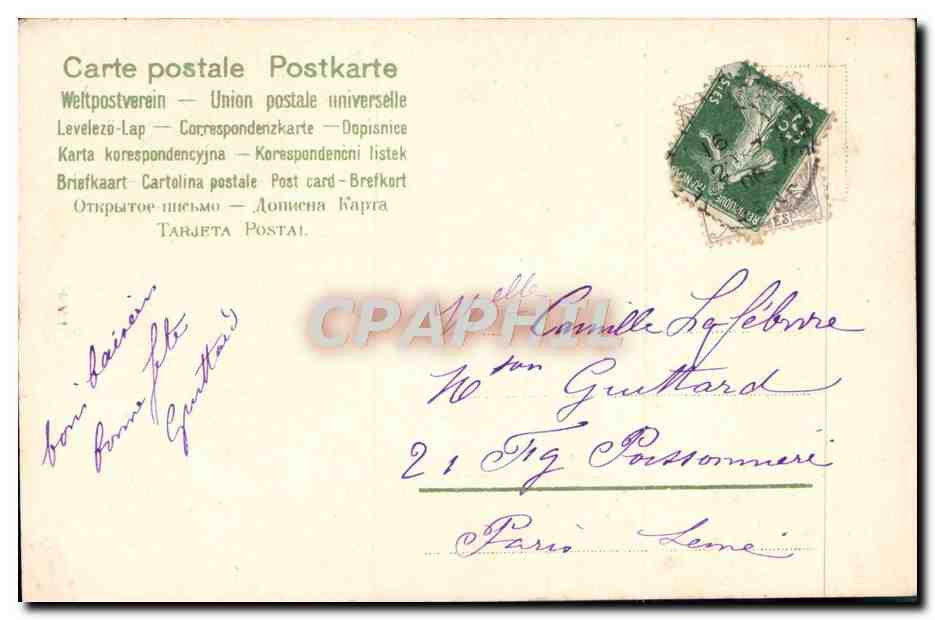 Carte postale Postkarte
Weltpostverein — Union postale universelle
Levelező-Lap — Correspondenzkarte — Dopisnice
Karta korespondencyjna — Korespondencni listek
Briefkaart Cartolina postale Post card - Brefkort
Открытое письмо — Дописна Карта
TARJETA POSTAL
CPAPHIL
Melle Camille Lefébvre
Mson Guittard
21 Fg Poissonnière
Paris
bons baisers
bonne fête
Guittard